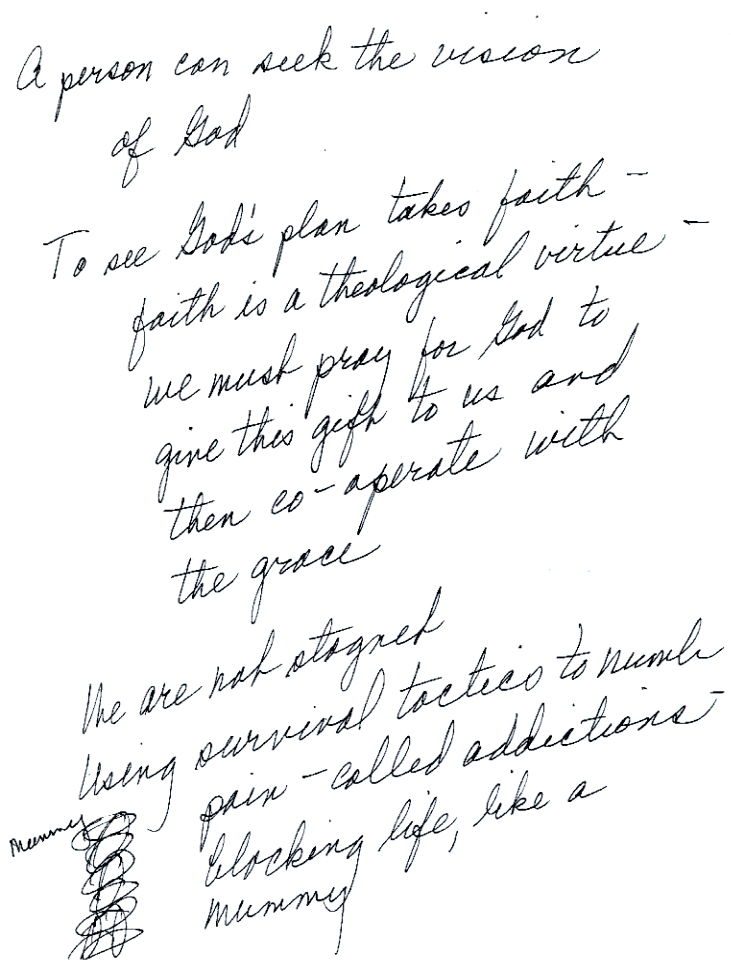 A person can seek the vision
of God
To see God's plan takes faith -
faith is a theological virtue -
we must pray for God to
give this gift to us and
then co-operate with
the grace
We are not stagnet
Using survival tactics to numb
pain - called addictions -
blocking life, like a
mummy
Mummy